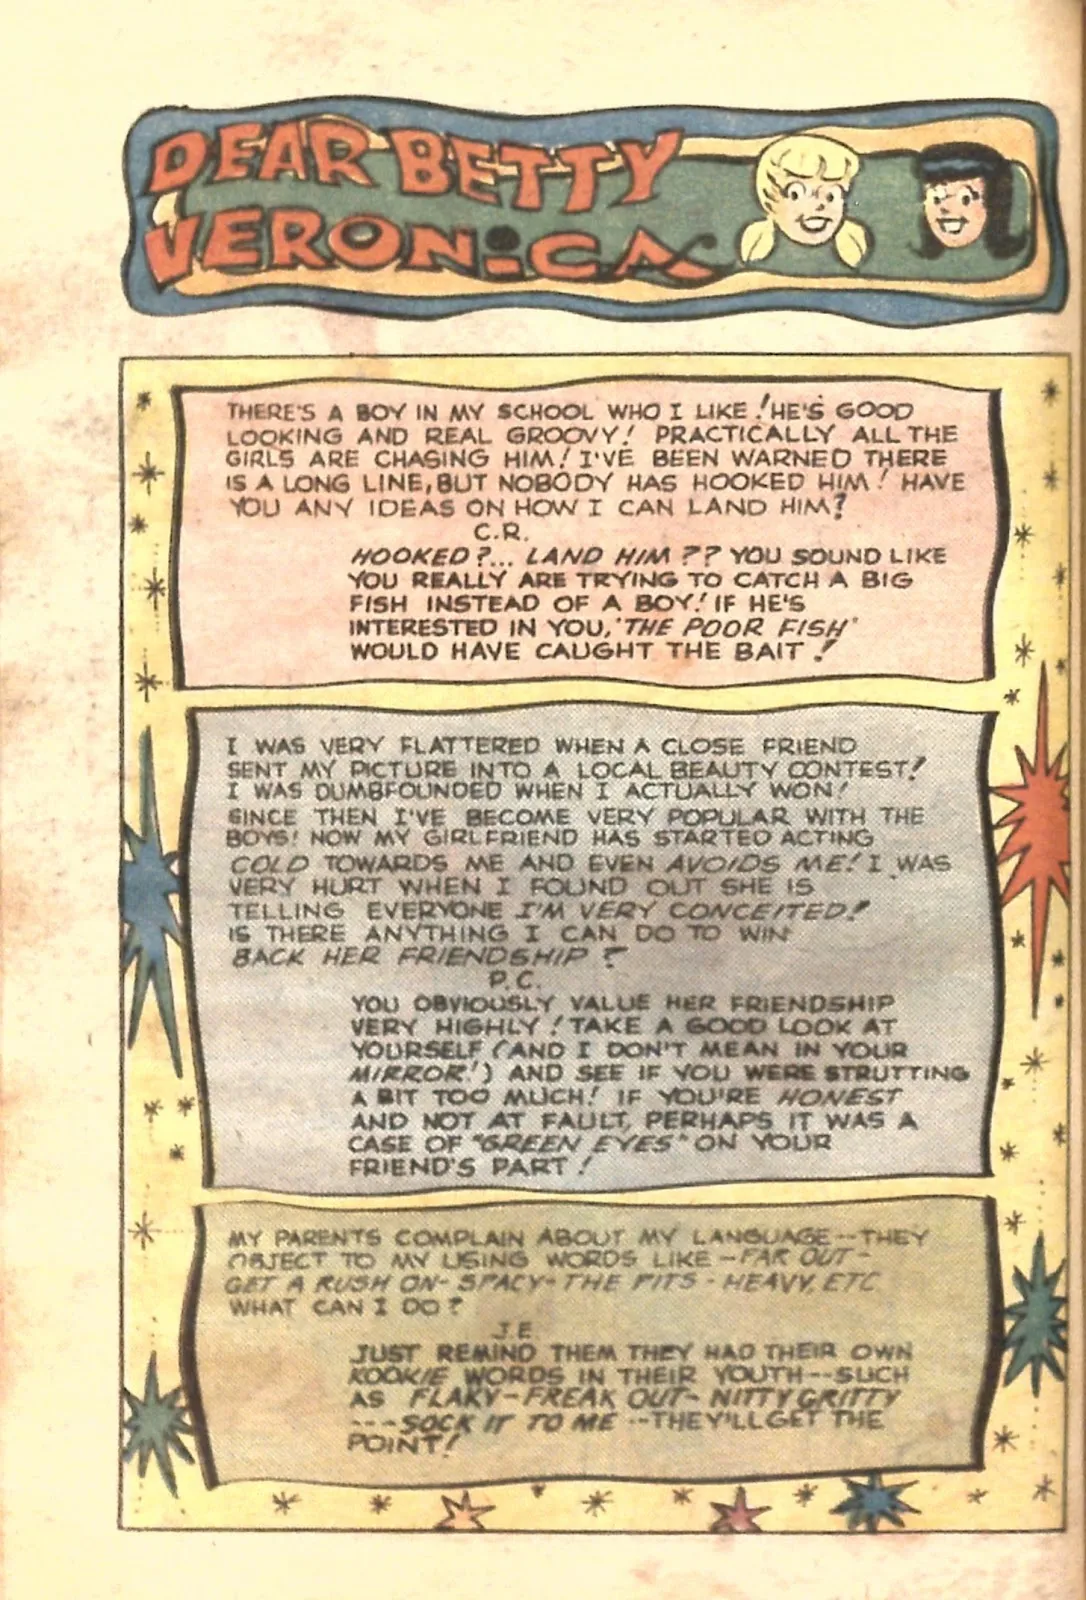 DEAR BETTY
VERONICA
THERE'S A BOY IN MY SCHOOL WHO I LIKE! HE'S GOOD
LOOKING AND REAL GROOVY! PRACTICALLY ALL THE
GIRLS ARE CHASING HIM! I'VE BEEN WARNED THERE
IS A LONG LINE, BUT NOBODY HAS HOOKED HIM! HAVE
YOU ANY IDEAS ON HOW I CAN LAND HIM?
C.R.
HOOKED?... LAND HIM?? YOU SOUND LIKE
YOU REALLY ARE TRYING TO CATCH A BIG
FISH INSTEAD OF A BOY! IF HE'S
INTERESTED IN YOU, 'THE POOR FISH'
WOULD HAVE CAUGHT THE BAIT!
I WAS VERY FLATTERED WHEN A CLOSE FRIEND
SENT MY PICTURE INTO A LOCAL BEAUTY CONTEST!
I WAS DUMBFOUNDED WHEN I ACTUALLY WON!
SINCE THEN I'VE BECOME VERY POPULAR WITH THE
BOYS! NOW MY GIRLFRIEND HAS STARTED ACTING
COLD TOWARDS ME AND EVEN AVOIDS ME! I WAS
VERY HURT WHEN I FOUND OUT SHE IS
TELLING EVERYONE I'M VERY CONCEITED!
IS THERE ANYTHING I CAN DO TO WIN
BACK HER FRIENDSHIP?
P.C.
YOU OBVIOUSLY VALUE HER FRIENDSHIP
VERY HIGHLY! TAKE A GOOD LOOK AT
YOURSELF (AND I DON'T MEAN IN YOUR
MIRROR!) AND SEE IF YOU WERE STRUTTING
A BIT TOO MUCH! IF YOU'RE HONEST
AND NOT AT FAULT, PERHAPS IT WAS A
CASE OF "GREEN EYES" ON YOUR
FRIEND'S PART!
MY PARENTS COMPLAIN ABOUT MY LANGUAGE--THEY
OBJECT TO MY USING WORDS LIKE -FAR OUT-
GET A RUSH ON- SPACY- THE PITS - HEAVY, ETC
WHAT CAN I DO?
J.E.
JUST REMIND THEM THEY HAD THEIR OWN
KOOKIE WORDS IN THEIR YOUTH--SUCH
AS FLAKY-FREAK OUT- NITTY GRITTY
---SOCK IT TO ME --THEY'LL GET THE
POINT!